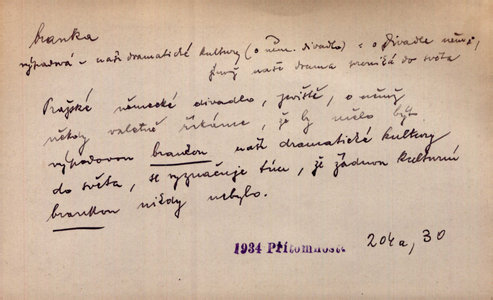 branka
výpadová – naší dramatické kultury (o něm. divadle) = o divadle něm.,
jímž naše drama proniká do světa
Pražské německé divadlo, jeviště, o němž
někdy valetně říkáme, že by mělo být
výpadovou brankou naší dramatické kultury
do světa, se vyznačuje tím, že žádnou kulturní
brankou nikdy nebylo.
1934 Přítomnost 204a, 30